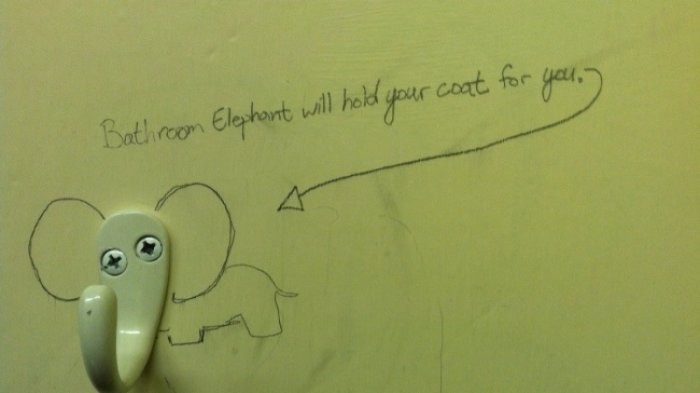 Bathroom Elephant will hold your coat for you.